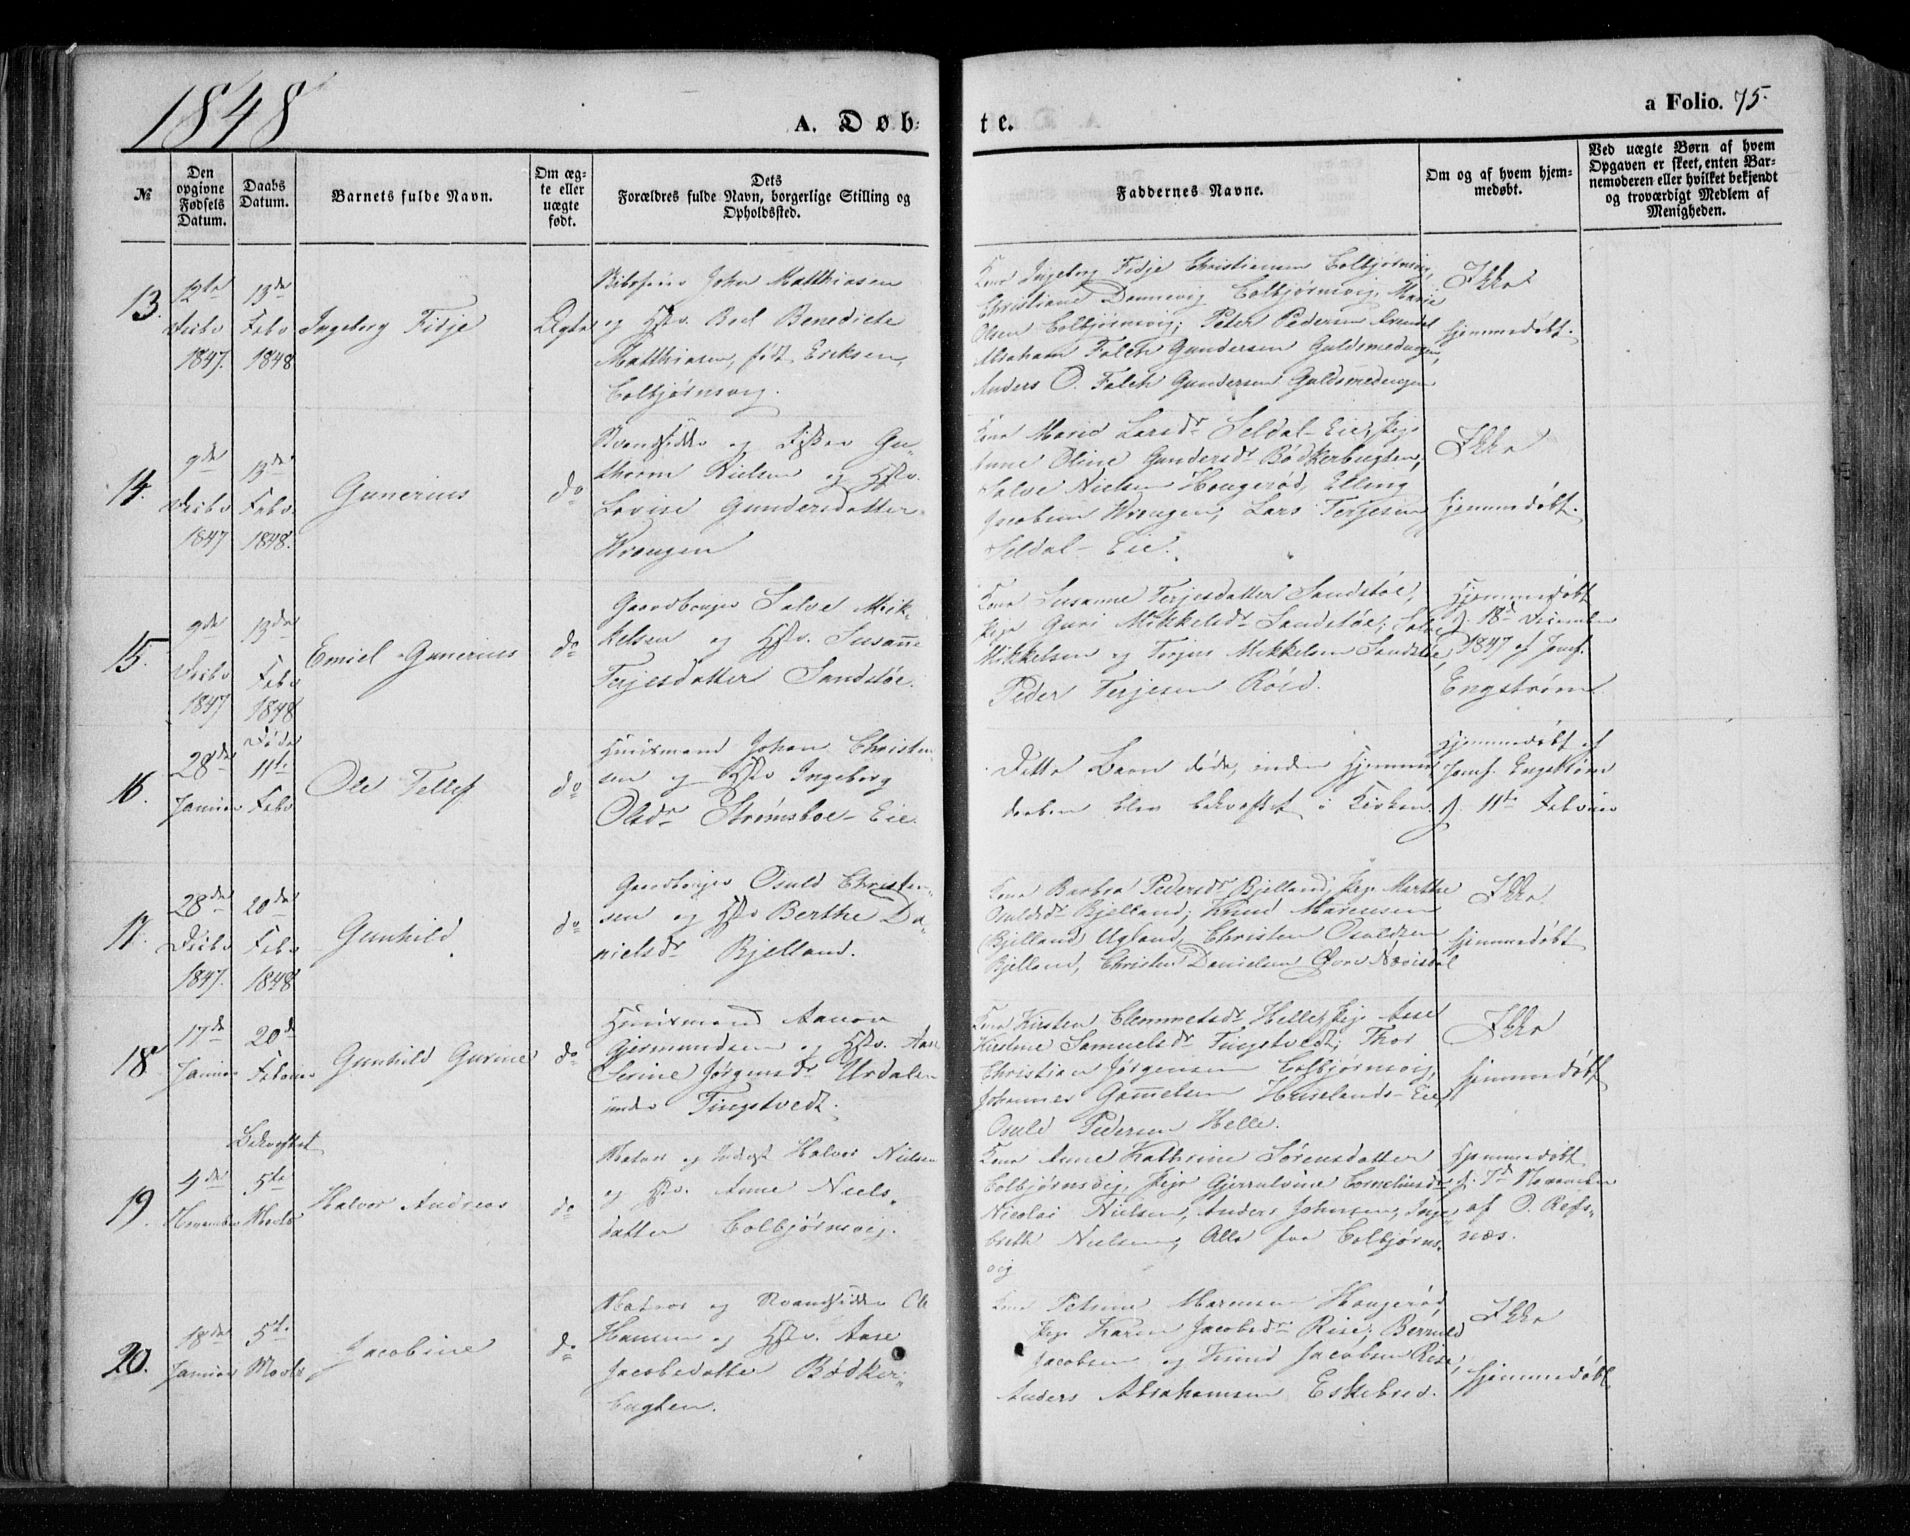 1848
A. Døb-
te.
a Folio. 75.
№
Den opgivne Fødsels Datum.
Daabs Datum.
Barnets fulde Navn.
Om ægte eller uægte født.
Dets
Forældres fulde Navn, borgerlige Stilling og Opholdssted.
Faddernes Navne.
Om og af hvem hjemmedøbt.
Ved uægte Børn af hvem Opgaven er skeet, enten Barnemoderen eller hvilket bekjendt og troværdigt Medlem af Menigheden.
13.
12te
Decbr
1847.
13de
Febr
1848
Ingeborg Fidje
Ægte
John Matthiasen
og Hstr. Boel Benedicte
Matthiasen, født Eriksen,
Colbjørnsvig.
Kone Ingeborg Fidje Christiansen Colbjørnsvig,
Christiane Dannevig Colbjørnsvig, Marie
Olsen Colbjørnsvig; Peter Pedersen Arendal
Abraham Falch Gundersen Guldsmedengen,
Anders O. Falch Gundersen Guldsmedengen
Ikke
hjemmedøbt.
14.
9de
Decbr
1847
13de
Febr.
1848.
Gunerius
do
Strandsidder og Fisker Gu-
thorm Nielsen og Hstr.
Lovise Gundersdatter
Wrengen
Kone Marie Larsdr Seldal-Eie, Pige
Oline Gundersdr Bødkerbugten,
Salve Nielsen Hougerød, Elling
Jacobsen Wrengen, Lars Terjesen
Seldal-Eie.
Ikke
hjemmedøbt.
15.
9de
Decbr
1847
13de
Febr
1848
Emiel Gunerius
do
Gaardbruger Salve Mik-
kelsen og Hstr. Susanne
Terjesdatter Sandstøe.
Kone Susanne Terjesdatter Sandstøe,
Pige Guri Mikkelsdr Sandstøe; Salve
Mikkelsen og Terjes Mikkelsen Sandstøe,
Peder Terjesen Røed.
Hjemmedøbt
d. 18d December
1847 af Jomf.
Engstrøm
16.
28de
Januar
Døde
11te
Febr
Ole Tellef
do
Huusmand Johan Christen-
sen og Hstr Ingeborg
Olsdr Strømsboe-Eie.
Dette Barn døde, inden Hjemme
daaben blev bekræftet i Kirken.
Hjemmedøbt af
Jomf. Engstrøm
d. 11te Februar
17.
28de
Decbr
1847.
20de
Febr
1848
Gunhild
do
Gaardbruger Osuld Christen-
sen og Hstr Berthe Da-
nielsdr Bjelland.
Kone Barbra Pedersdr Bjelland, Pige Marthe
Osuldsdr Bjelland; Knud Marensen
Bjelland Ugland, Christen Osuldsen
Bjelland, Christen Danielsen Øvre Nævisdal
Ikke
hjemmedøbt
18
17de
Januar
20d
Februar
Gunhild Gurine
do
Huusmand Aanon
Gjermundsen og Hstr. Aase
Serine Jørgensdr Urdalen
under Tingstvedt.
Kone Kirsten Clemmetsdr Helle, Pige Aase
Kirstine Samuelsdr Tingstvedt; Thor
Christian Jørgensen Colbjørnsvig,
Johannes Gamelsen Huselands-Eie,
Osuld Pedersen Helle.
Ikke
hjemmedøbt
19.
4de
November
Bekræftet
5te
Marts
Halvor Andreas
do
Matros og Halvor Nielsen
og Hstr. Anne Niels-
datter Colbjørnsvig.
Kone Anne Kathrine Sørensdatter
Colbjørnsvig, Pige Gjerulvine Corneliusdr
Nicolai Nielsen, Anders Johnsen, Inge-
breth Nielsen, Alle fra Colbjørns-
vig
Hjemmedøbt
d. 7d November
af O. Refs-
næs.
20.
18de
Januar
5te
Marts
Jacobine
do
Matros og Strandsidder Ole
Hansen og Hstr. Aase
Jacobsdatter Bødker-
bugten.
Kone Petrine Marensen Hougerød,
Pige Karen Jacobsdr Rise, Bernuld
Jacobsen og Knud Jacobsen Rise,
Anders Abrahamsen Eskebred.
Ikke
hjemmedøbt